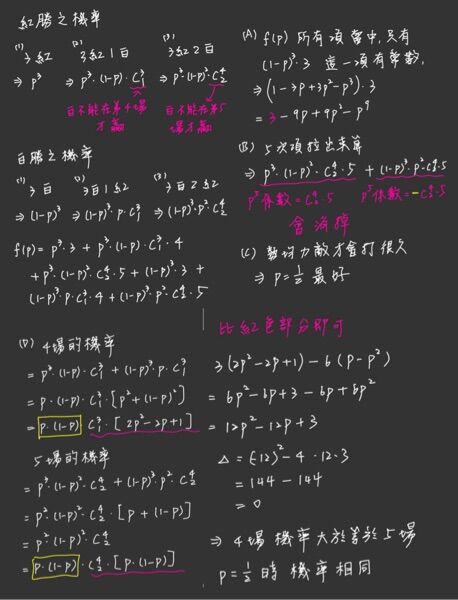 紅勝之機率
(1) 3紅 (2) 3紅1白 (3) 3紅2白
⇒ p³ ⇒ p³·(1-p)·C₁³ ⇒ p³·(1-p)²·C₂⁴
白不能在第4場才贏 白不能在第5場才贏
白勝之機率
(1) 3白 (2) 3白1紅 (3) 3白2紅
⇒ (1-p)³ ⇒ (1-p)³·p·C₁³ ⇒ (1-p)³·p²·C₂⁴
f(p) = p³·3 + p³·(1-p)·C₁³·4
+ p³·(1-p)²·C₂⁴·5 + (1-p)³·3 +
(1-p)³·p·C₁³·4 + (1-p)³·p²·C₂⁴·5
(A) f(p) 所有項當中,只有
(1-p)³·3 這一項有常數,
⇒ (1-3p+3p²-p³)·3
= 3-9p+9p²-p⁹
(B) 5次項拉出來算
⇒ p³·(1-p)²·C₂⁴·5 + (1-p)³·p²·C₂⁴·5
p⁵係數 = C₂⁴·5 p⁵係數 = -C₂⁴·5
會消掉
(C) 勢均力敵才會打很久
⇒ p = ½ 最好
(D) 4場的機率
= p³·(1-p)·C₁³ + (1-p)³·p·C₁³
= p·(1-p)·C₁³·[p²+(1-p)²]
= p·(1-p)·C₁³·[2p²-2p+1]
5場的機率
= p³·(1-p)²·C₂⁴ + (1-p)³·p²·C₂⁴
= p²·(1-p)²·C₂⁴·[p+(1-p)]
= p²·(1-p)²·C₂⁴
= p·(1-p)·C₂⁴·[p·(1-p)]
比紅色部分即可
3(2p²-2p+1)-6(p-p²)
= 6p²-6p+3-6p+6p²
= 12p²-12p+3
△ = (-12)²-4·12·3
= 144-144
= 0
⇒ 4場機率大於等於5場
p = ½ 時機率相同